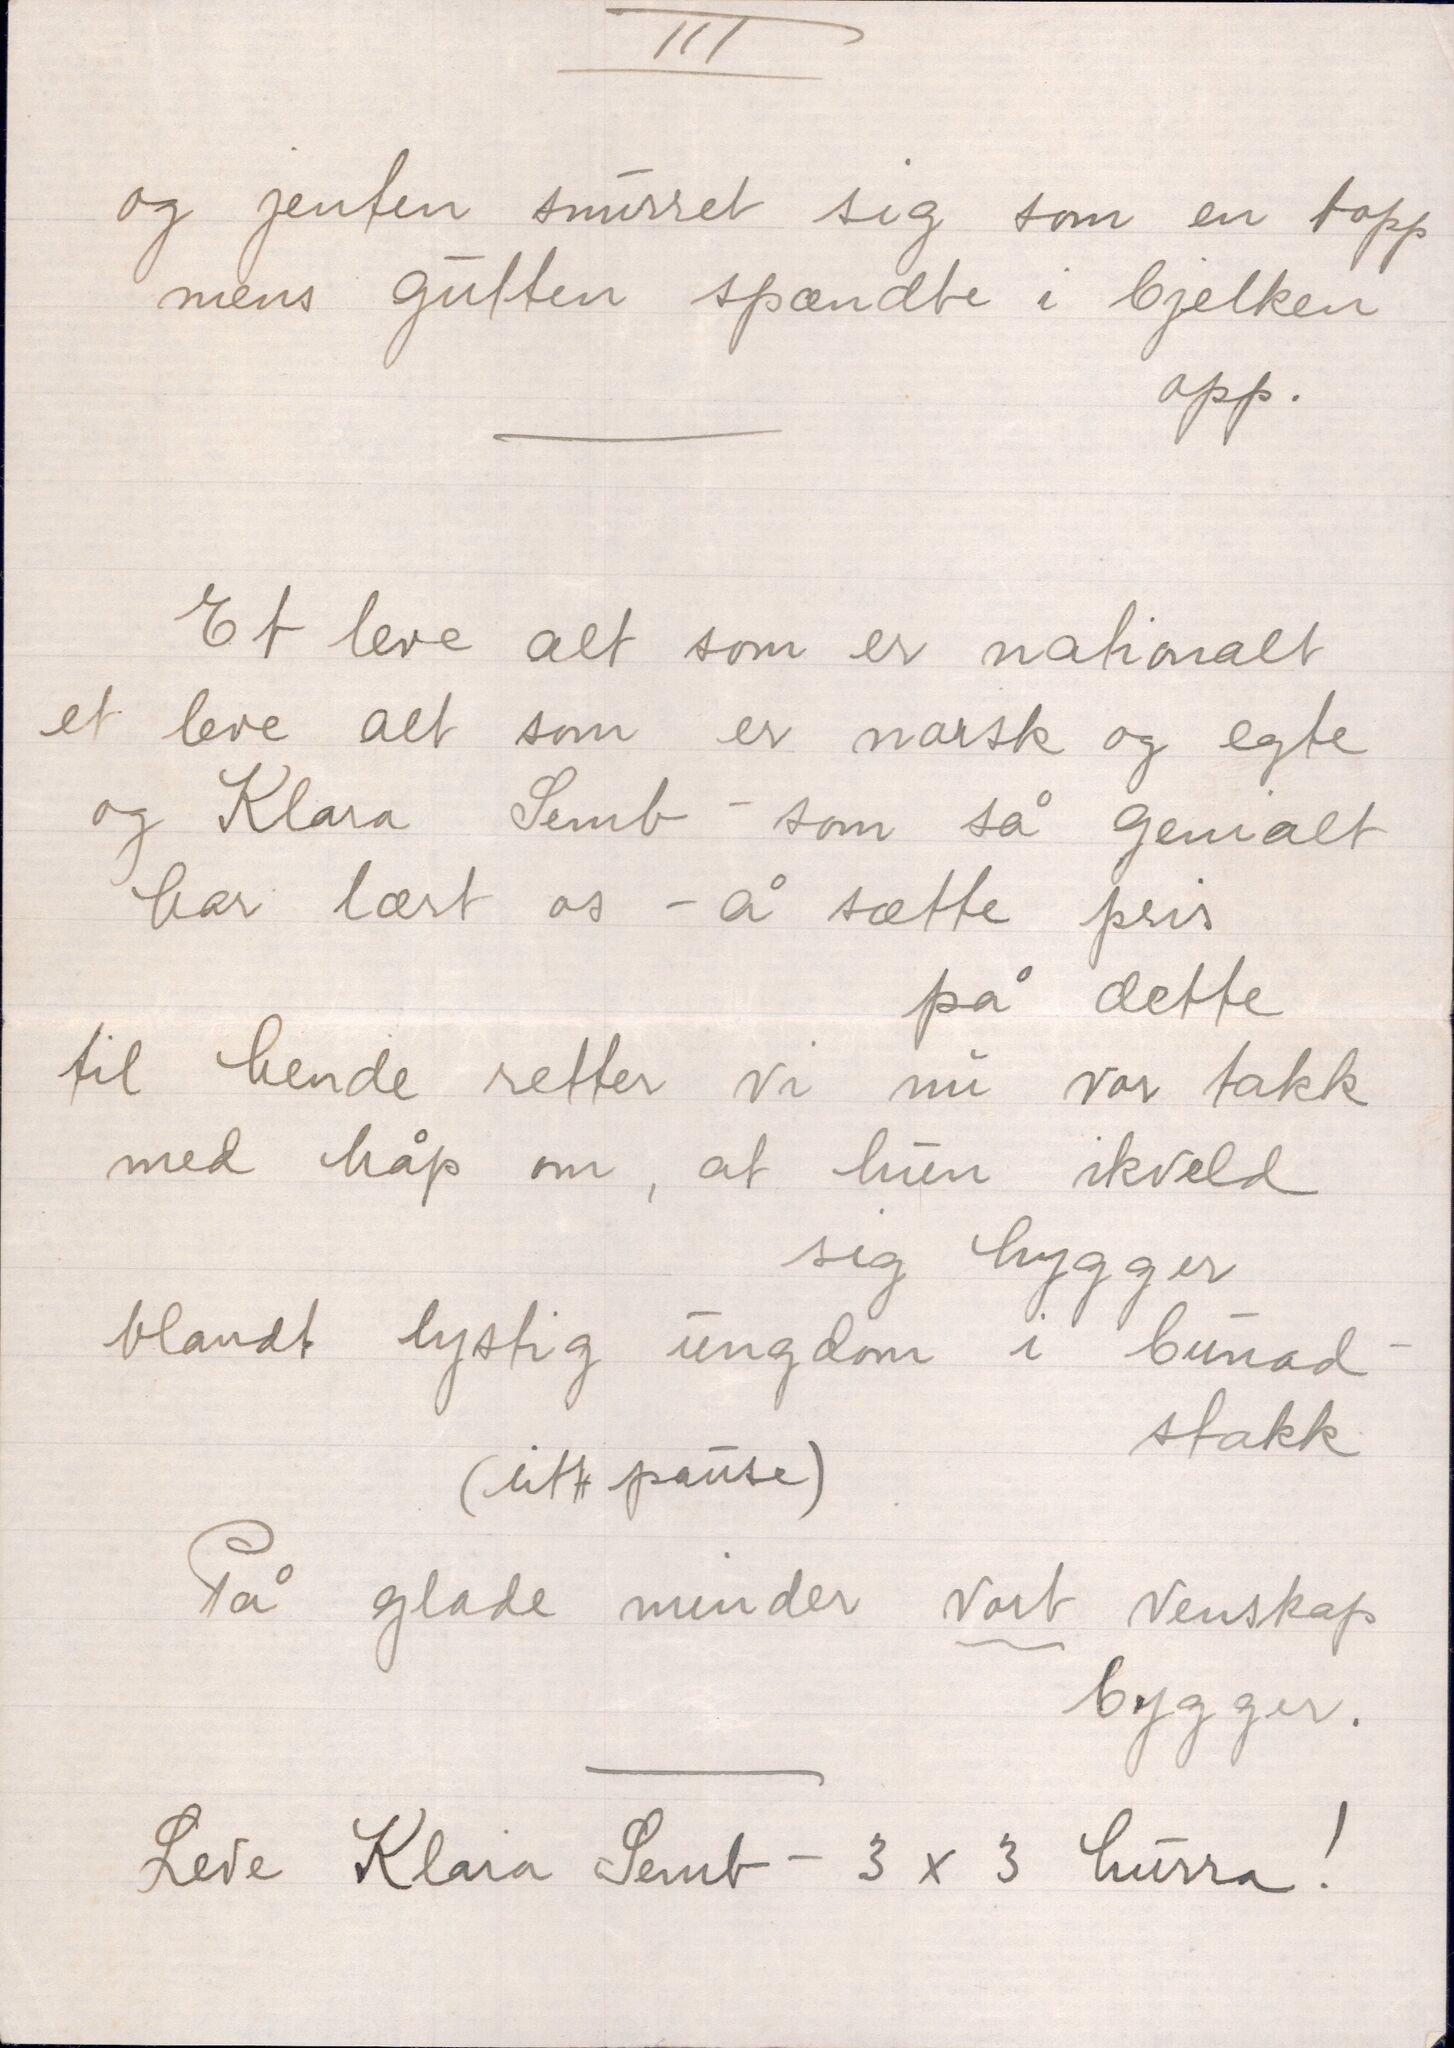 III
og jenten snurret sig som en topp
mens gutten spændte i bjelken
opp.
Et leve alt som er nationalt
et leve alt som er norsk og egte
og Klara Semb - som så genialt
har lært os - å sætte pris
på dette
til hende retter vi nu vor takk
med håp om, at hun ikveld
sig hygger
blandt lystig ungdom i bunad-
stakk
(litt pause)
På glade minder vort venskap
bygger.
Leve Klara Semb - 3 x 3 hurra!